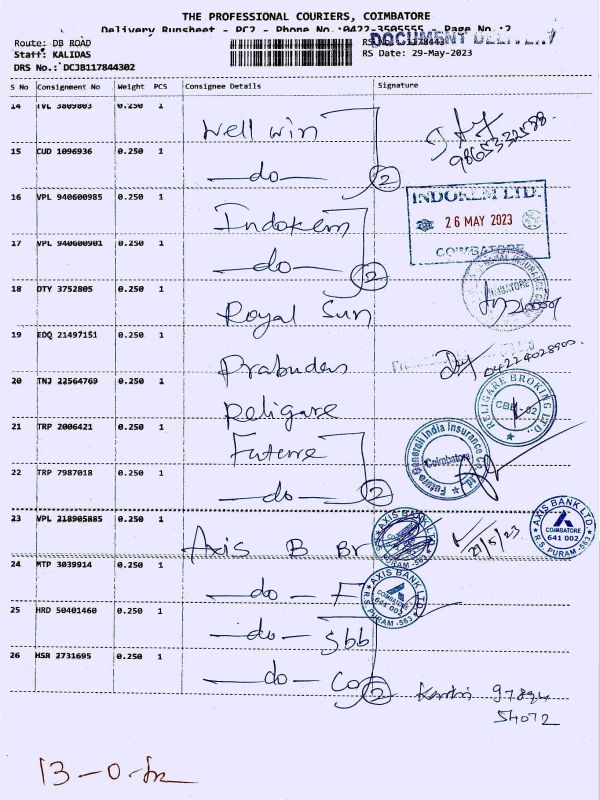 THE PROFESSIONAL COURIERS, COIMBATORE
Delivery Runsheet - PC2 - Phone No.:0422-3505555 - Page No.:2
DOCUMENT DELIVERY
Route: DB ROAD
RS No.: 1178443
Staff: KALIDAS
RS Date: 29-May-2023
DRS No.: DCJB117844302
S No Consignment No Weight PCS Consignee Details Signature
14 TVL 3809803 0.250 1 Well win
9865332588
15 CUD 1096936 0.250 1 —do— 2
16 VPL 940600985 0.250 1 Indokem
INDOKEM LTD.
26 MAY 2023
COIMBATORE
17 VPL 940600901 0.250 1 —do— 2
18 DTY 3752805 0.250 1 Royal Sun
19 EDQ 21497151 0.250 1 Prabuden
20 TNJ 22564769 0.250 1 Religare
RELIGARE BROKING LTD.
21 TRP 2006421 0.250 1 Future
Future Generali India Insurance Co. Ltd
Coimbatore
22 TRP 7987018 0.250 1 —do— 2
23 VPL 218905885 0.250 1 Axis B Br
AXIS BANK LTD.
29/5/23
AXIS BANK LTD.
COIMBATORE
641 002
R.S. PURAM -563
24 MTP 3039914 0.250 1 —do— F
AXIS BANK LTD.
COIMBATORE
641 002
R.S. PURAM -563
25 HRD 50401460 0.250 1 —do— Sbb
26 HSR 2731695 0.250 1 —do— Co 2
54072
13-0-